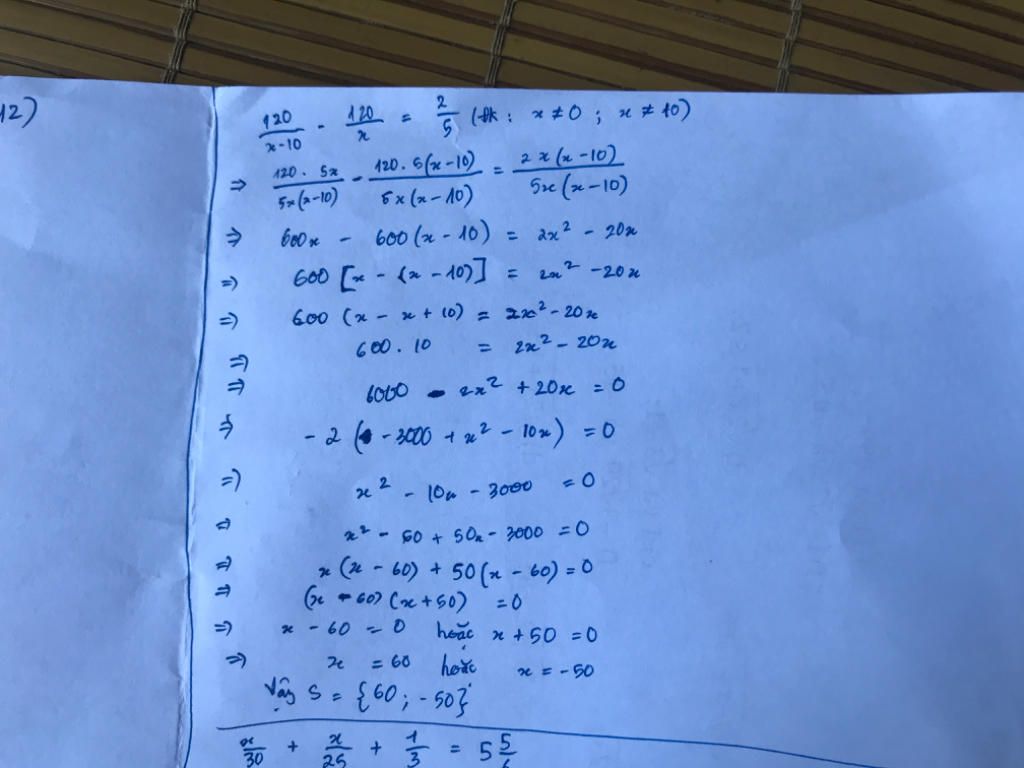 12)
120/(x-10) - 120/x = 2/5 (đk : x ≠ 0 ; x ≠ 10)
⇒ 120 . 5x/5x(x-10) - 120 . 5(x-10)/5x(x-10) = 2x(x-10)/5x(x-10)
⇒ 600x - 600(x-10) = 2x² - 20x
⇒ 600 [x - (x-10)] = 2x² - 20x
⇒ 600 (x - x + 10) = 2x² - 20x
⇒ 600 . 10 = 2x² - 20x
⇒ 6000 - 2x² + 20x = 0
⇒ -2 (-3000 + x² - 10x) = 0
⇒ x² - 10x - 3000 = 0
⇒ x² - 60 + 50x - 3000 = 0
⇒ x(x - 60) + 50(x - 60) = 0
⇒ (x - 60) (x + 50) = 0
⇒ x - 60 = 0 hoặc x + 50 = 0
⇒ x = 60 hoặc x = -50
Vậy S = {60 ; -50}
x/30 + x/25 + 1/3 = 5 5/6